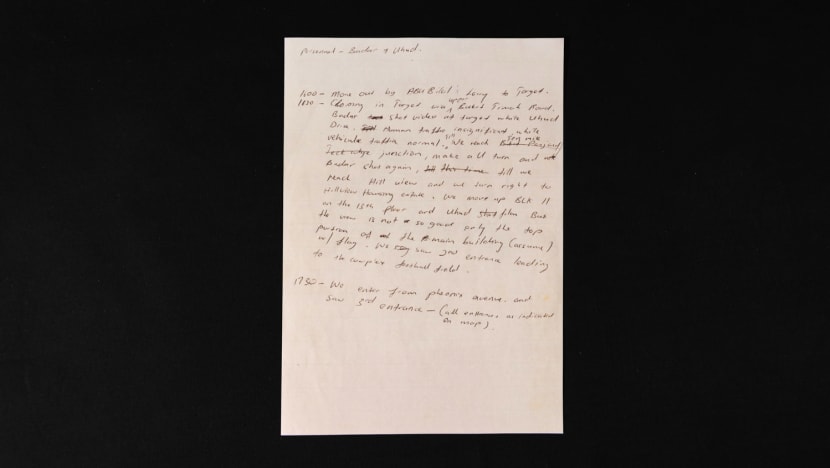 Personnel - Badar + Uhud.
1600 - Move out by Bilal going to Target.
1630 - Coming in Target area upper Bukit Timah Road.
Badar shot video at target while Uhud
Drive. Human traffic insignificant, while
vehicular traffic normal, till we reach
junction, make a U turn and
Badar shot again, till we
reach Hill view and we turn right to
Hillview Housing estate. We move up BLK 11
on the 15th floor and Uhud film But
the view is not so good only the top
portion of the main building (assume)
w/ flag. We saw 2nd entrance leading
to the complex football field.
1730 - We enter from phoenix avenue and
saw 3rd entrance - (all entrances as indicated
on map).